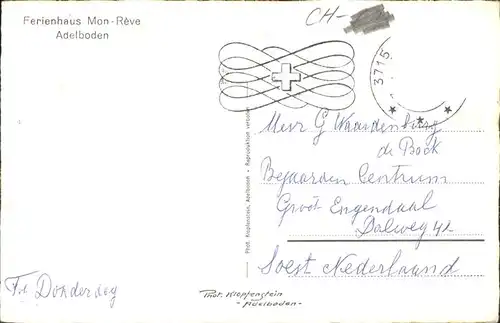 Ferienhaus Mon-Rêve
Adelboden
CH-
3715
Mevr G Waardenburg
de Bock
Bejaarden Centrum
Groot Engendaal
Dalweg 42
Soest Nederlaand
Donderdag
Phot. Klopfenstein, Adelboden • Reproduktion verboten
Phot. Klopfenstein
- Adelboden -